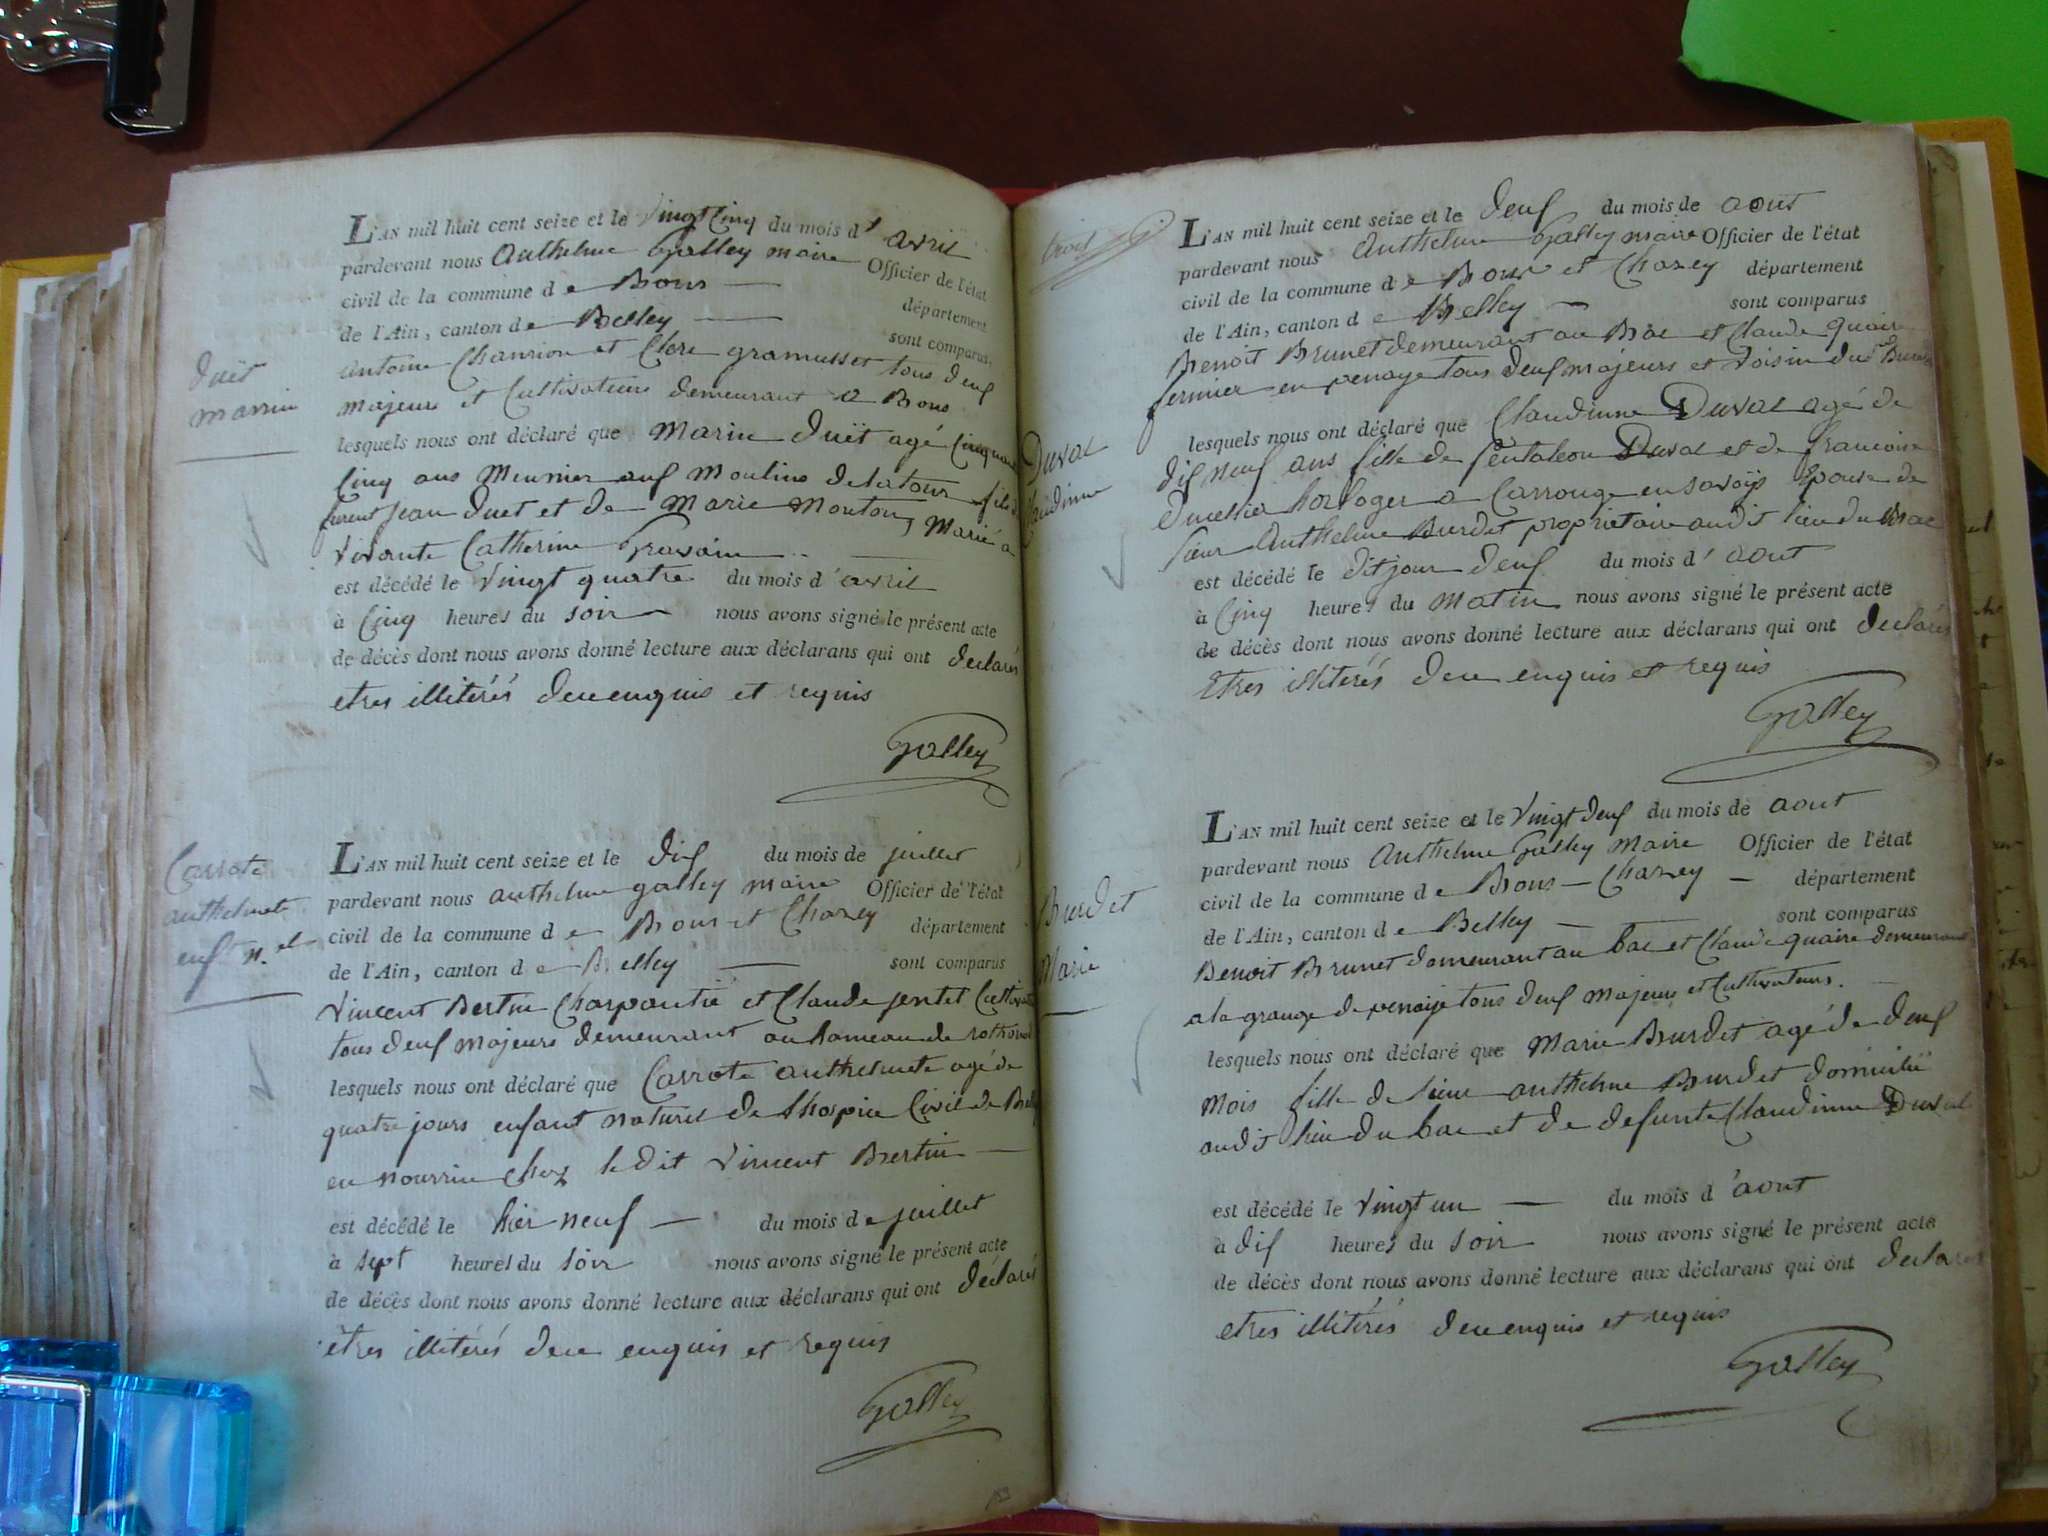 L'AN mil huit cent seize et le vingt Cinq du mois d' avril
pardevant nous Anthelme Galley maire Officier de l'état
civil de la commune de Bons département
de l'Ain, canton de Belley sont comparus
Duët
marin
antoine Chanrion et Clere gramusset tous deux
majeurs et Cultivateurs demeurant a Bons
lesquels nous ont déclaré que Marin Duët agé Cinquante
Cinq ans Meunier aux Moulins de la tour fils d
furent jean Duet et de Marie Monton, Marié a
vivante Catherine Gravain
est décédé le vingt quatre du mois d'avril
à Cinq heures du soir nous avons signé le présent acte
de décès dont nous avons donné lecture aux déclarans qui ont declarés
etres illitérés de ce enquis et requis
Galley
Carrote
anthelmete
enf n.el
L'AN mil huit cent seize et le dix du mois de juillet
pardevant nous anthelme galley maire Officier de l'état
civil de la commune de Bons et Chazey département
de l'Ain, canton de Belley sont comparus
Vincent Bertin Charpantié et Claude jentet Cultivate
tous deux majeurs demeurant au hameau de rothonod
lesquels nous ont déclaré que Carrote anthelmete agé de
quatre jours enfant naturel de Lhospice Civil de Belley
en nourrice chez le dit Vincent Bertin
est décédé le hier neuf du mois de juillet
à sept heures du soir nous avons signé le présent acte
de décès dont nous avons donné lecture aux déclarans qui ont déclarés
êtres illitérés de ce enquis et requis
Galley
L'AN mil huit cent seize et le deux du mois de août
pardevant nous Anthelme Galley maire Officier de l'état
civil de la commune de Bons et Chazey département
de l'Ain, canton de Belley sont comparus
Benoit Brunet demeurant au Bac et Claude quaire
fermier en penaye tous deux majeurs et voisin dud Burdet
Duval
Claudinne
lesquels nous ont déclaré que Claudinne Duval agé de
dix neuf ans fille de pentaleon Duval et de francoise
Ducellier horloger a Carrouge en savoÿs Epouse de
sieur Anthelme Burdet proprietaire audit lieu du Bac
est décédé le dit jour deux du mois d' aout
à Cinq heures du matin nous avons signé le présent acte
de décès dont nous avons donné lecture aux déclarans qui ont declarés
Etres illitérés de ce enquis et requis
Galley
Burdet
Marie
L'AN mil huit cent seize et le vingt deux du mois de aout
pardevant nous Anthelme Galley Maire Officier de l'état
civil de la commune de Bons - Chazey département
de l'Ain, canton de Belley sont comparus
Benoit Brunet demeurant au bac et Claude quaire demeurant
a la grange de penaije tous deux majeurs et Cultivateurs.
lesquels nous ont déclaré que Marie Burdet agé de deux
mois fille de sieur anthelme Burdet domicilié
audit lieu du bac et de defunte Claudinne Duval
est décédé le vingt un du mois d'aout
à dix heures du soir nous avons signé le présent acte
de décès dont nous avons donné lecture aux déclarans qui ont declarés
etres illitérés de ce enquis et requis
Galley